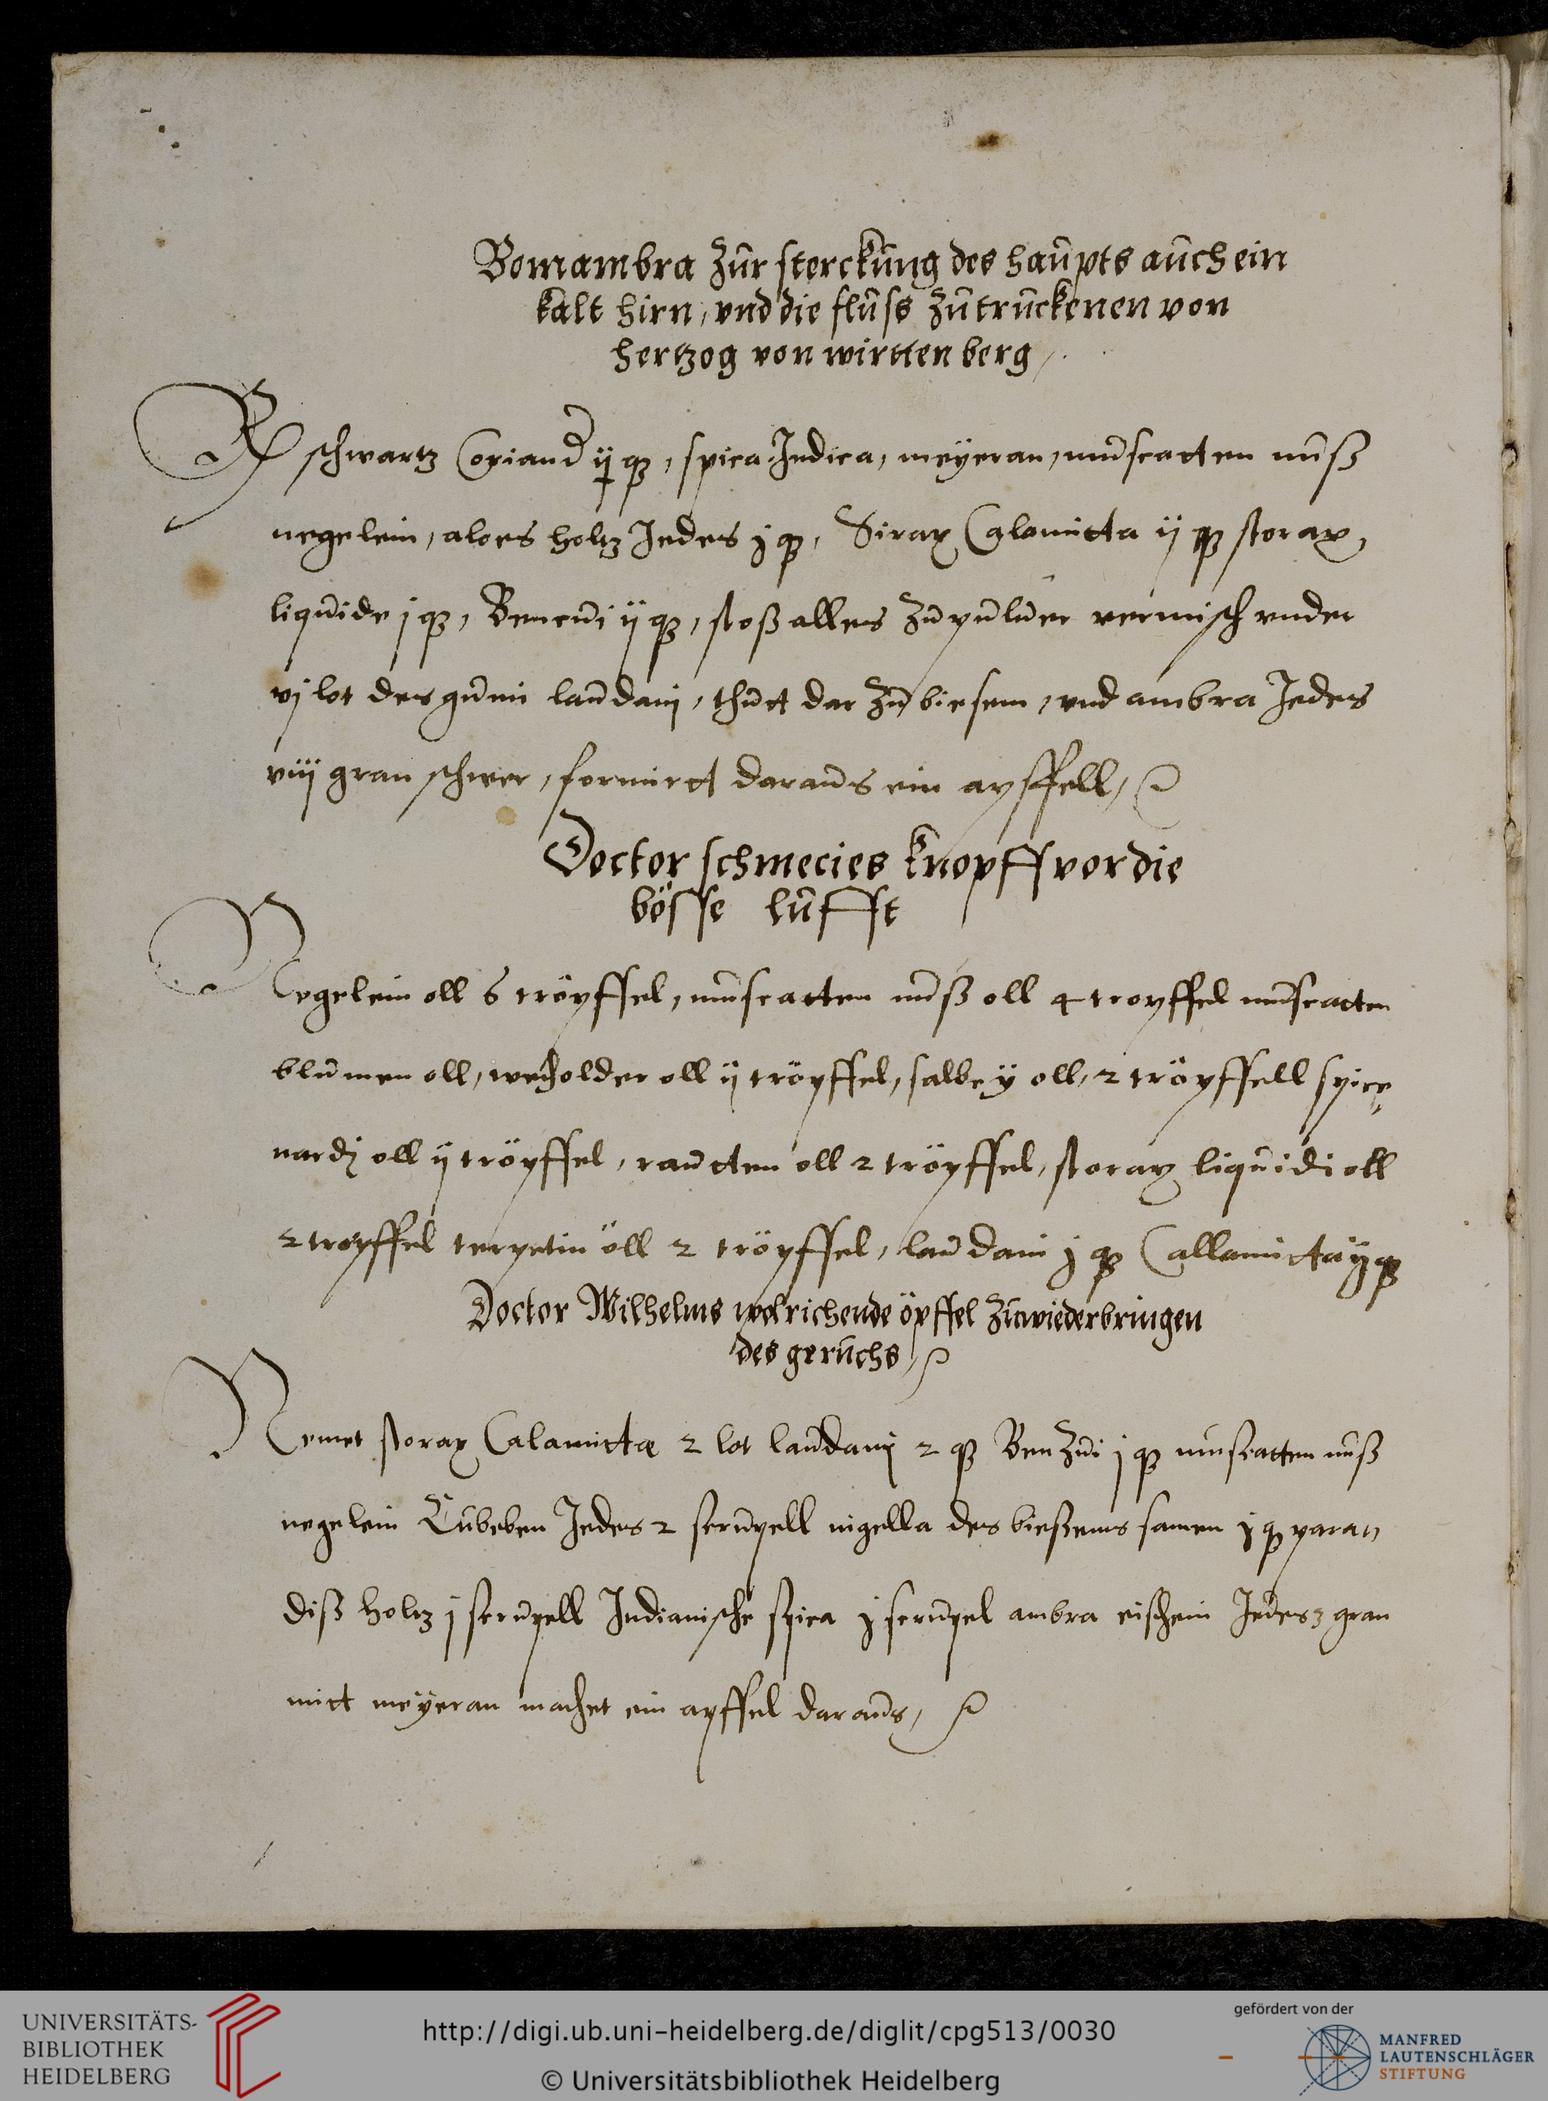 Bomambra zůr sterckůng des haůpts aůch ein
kalt hirn, vnd die flůss zů trůckenen von
hertzog von wirtten berg /.
schwartz Coriand ÿ qz, spica Indica, meÿeran, můscatten nůß
negelein, aloes holtz Jedes j qz, Sirax Calamitta ij qz storax
liqůide j qz, Bencůi ij qz, stoß alles zů půluer vermisch vnder
vj lot des gůmi laůdanj, thůtt dar zů biesem, vnd ambra Jedes
viij gran schwer, formirtt daraůs ein apffell,
Doctor schmecies knopff vor die
bösse lůfft
Negelein oll 6 tröpffel, můscatten nůß oll 4 tropffel můscatten
blůmen oll, wecholder oll ij tröpffel, salbeÿ oll, 2 tröpffell spice
nardj oll ij tröpffel, raůtten oll 2 tröpffel, storax liqůidi oll
2 tropffel terpetin öll 2 tröpffel, laůdani j qz Callamitta ij qz
Doctor Wilhelms wolrichende öpffel zůwiederbringen
des gerůchs,
Nemet storax Calamittæ 2 lot laůdanj 2 qz Benzůi j qz můscatten nůß
negelein Cůbeben Jedes 2 scrůpell nigella des bießems samen j qz para,
diß holtz j scrůpell Indianische spica j scrůpel ambra Jedes 3 gran
mitt meÿeran machet ein apffel daraůs,
UNIVERSITÄTS-
BIBLIOTHEK
HEIDELBERG
http://digi.ub.uni-heidelberg.de/diglit/cpg513/0030
© Universitätsbibliothek Heidelberg
gefördert von der
MANFRED
LAUTENSCHLÄGER
STIFTUNG